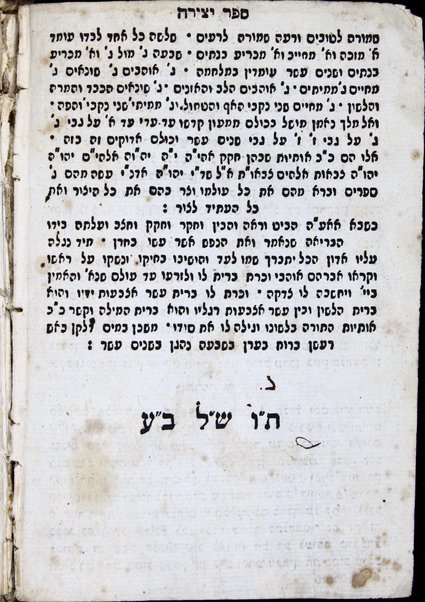 ספר יצירה
שמורה לטובים ורעה שמורה לרעים · שלשה כל אחד לבדו עומד
א׳ מזכה וא׳ מחייב וא׳ מכריע בנתים · שבעה ג׳ מול ג׳ וא׳ מכריע
בנתים ושנים עשר עומדין במלחמה · ג׳ אוהבים ג׳ שונאים ג׳
מחיים ג׳ ממיתים · ג׳ אוהבים הלב והאזנים · ג׳ שונאים הכבד והמרה
והלשון · ג׳ מחיים שני נקבי האף והטחול · ג׳ ממיתי׳ שני נקבי׳ והפה ·
ואל מלך נאמן מושל בכולם ממעון קדשו עד עדי עד א׳ על גבי ג׳
ג׳ על גבי ז׳ ז׳ על גבי שנים עשר וכולם אדוקים זה בזה ·
אלו הם כ״ב אותיות שבהן חקק אהי״ה י״ה יה״וה אלהי״ם יהו״ה
יהו״ה צבאות אלהים צבאו״ת א״ל שד״י יהו״ה אדנ״י עשה מהם ג׳
ספרים וברא מהם את כל עולמו וצר בהם את כל היצור ואת
כל העתיד לצור :
כשבא אאע״ה הביט וראה והבין וחקר וחקק וחצב ועלתה בידו
הבריאה שנאמר ואת הנפש אשר עשו בחרן · מיד נגלה
עליו אדון הכל יתברך שמו לעד והושיבו בחיקו ונשקו על ראשו
וקראו אברהם אוהבי וכרת ברית לו ולזרעו עד עולם שנא׳ והאמין
ביי׳ ויחשבה לו צדקה · וכרת לו ברית עשר אצבעות ידיו והוא
ברית הלשון ובין עשר אצבעות רגליו והוא ברית המילה וקשר כ״ב
אותיות התורה בלשונו וגילה לו את סודו · משכן במים דלקן באש
רעשן ברוח בערן בשבעה נהגן בשנים עשר :
ת״ו ש״ל ב״ע